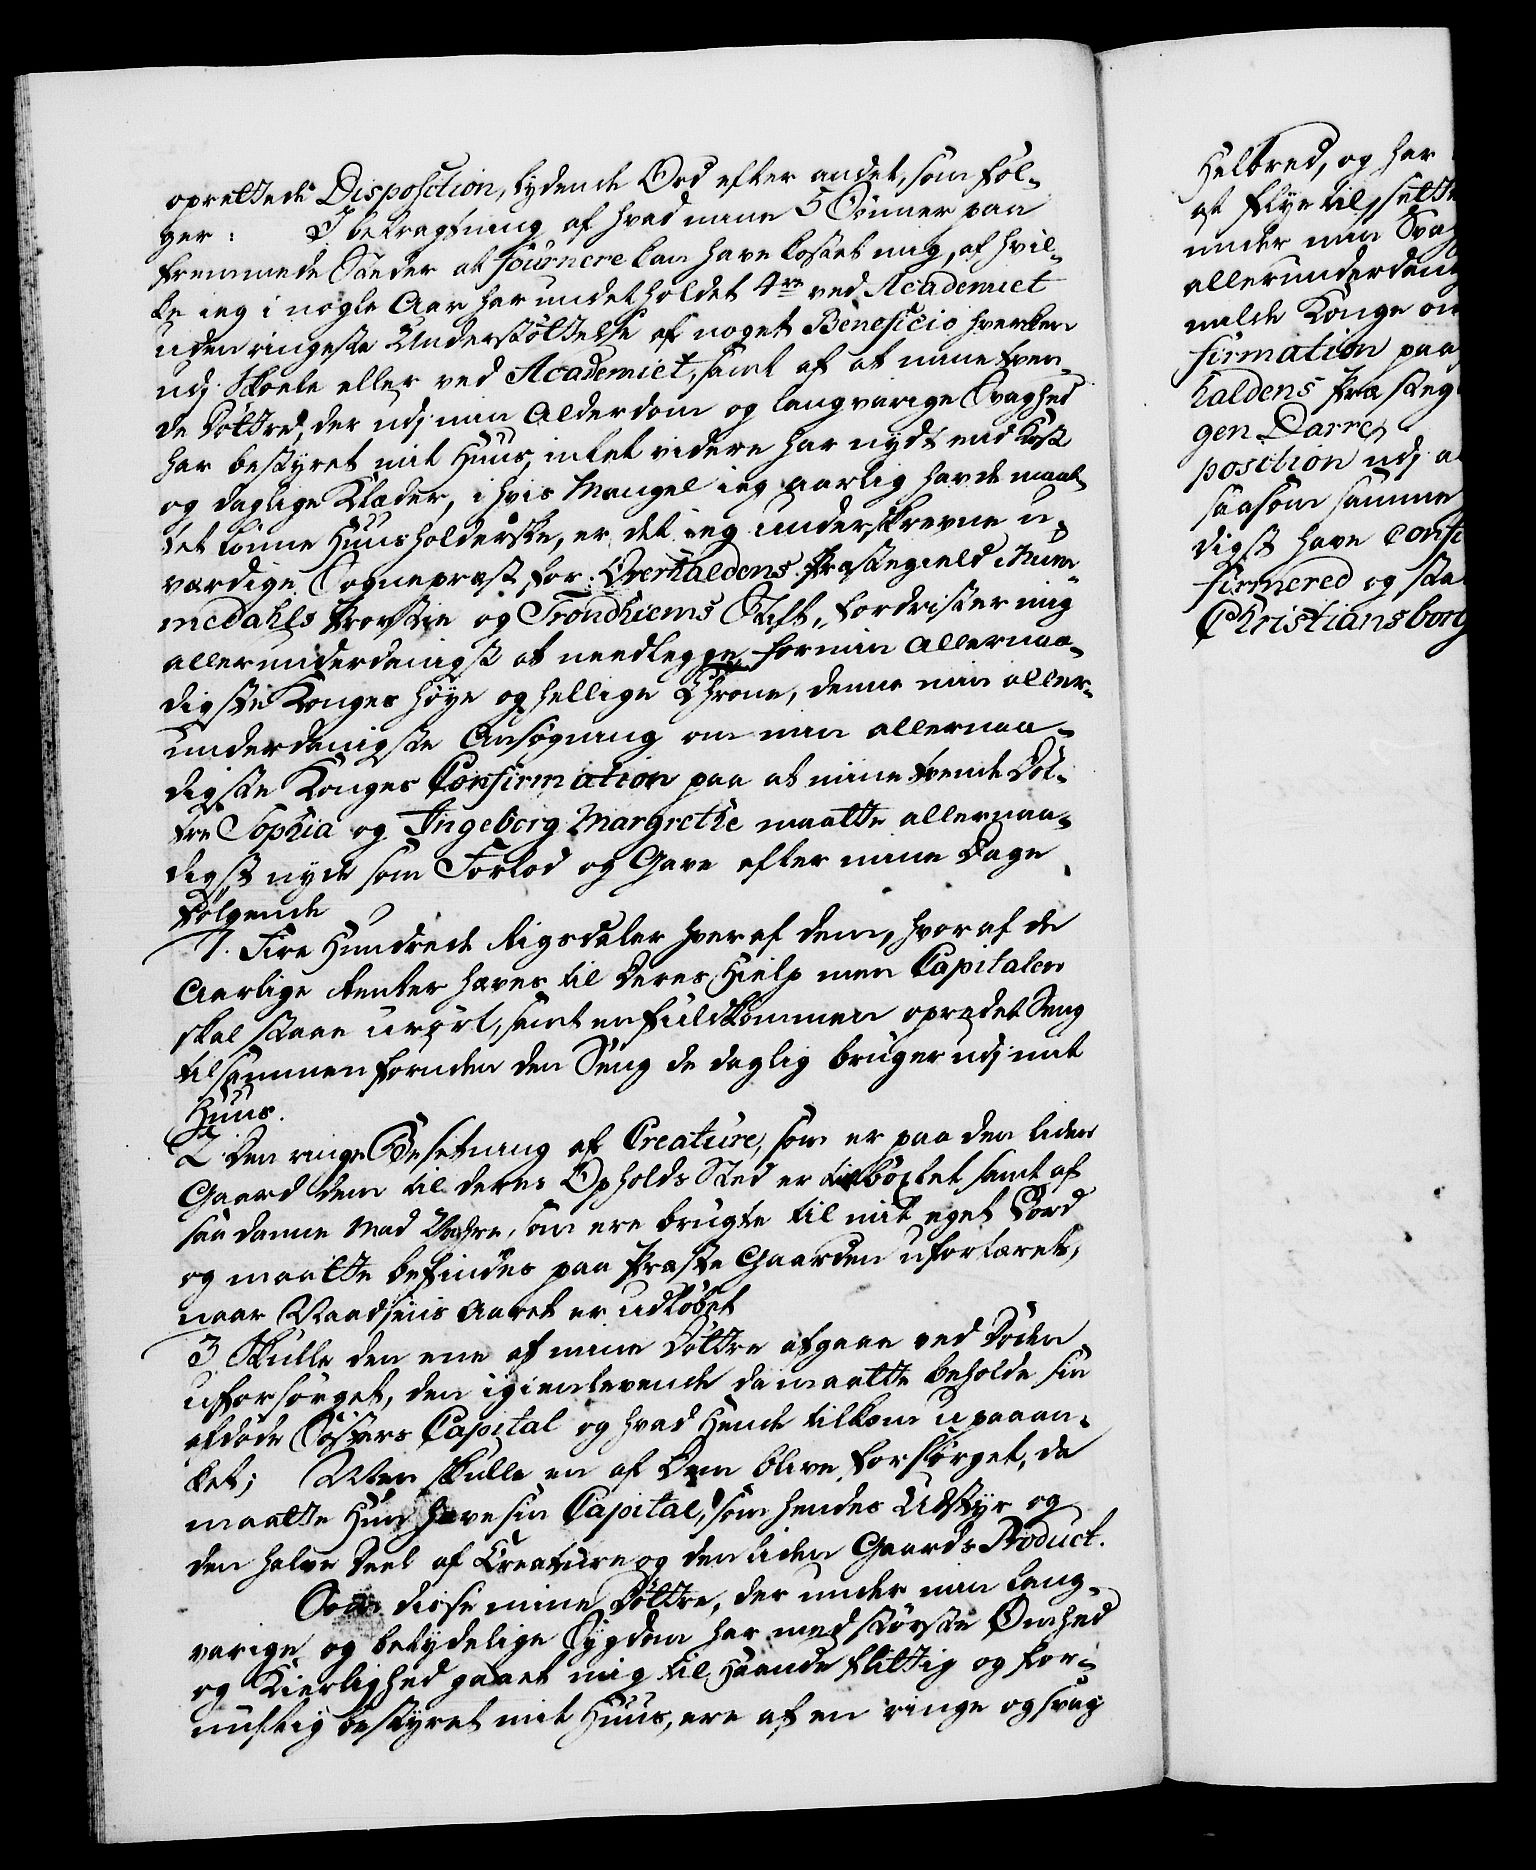 oprettede Disposition, lydende Ord efter andet, som föl-
ger: I betragtning af hvad mine 5 Sönner paa
fremmede Stæder at fournere kan have kostet mig, af hvil-
ke ieg i nogle Aar har underholdet 4re ved Academiet
uden ringeste Understöttelse af noget Beneficio hverken
udj Skoele eller ved Academiet, samt af at mine tven-
de Döttre, der udj min Alderdom og langvarige Svaghed
har bestyret mit Huus, intet videre har nydt end Kost
og daglige Klæder, i hvis Mangel ieg aarlig havde maat-
tet lönne Huusholderske, er det ieg underskrevne u-
værdige Sognepræst for Overhaldens Præstegield i Num-
medahls Provstie og Trondhiems Stift, fordrister mig
allerunderdanigst at needlegge for min Allernaa-
digste Konges höye og hellige Throne, denne min aller-
underdanigste Ansögning om min allernaa-
digste Konges Confirmation paa at mine tvende Döt-
tre Sophia og Ingeborg Margrethe maatte allernaa-
digst nyde som Forlod og Gave efter mine Dage
fölgende
1. Fire Hundrede Rigsdaler hver af dem, hvor af de
Aarlige Renter haves til Deres Hielp men Capitalen
skal staae urört, samt en fuldkommen opredet Seng
tilsammen foruden den Seng de daglig bruger udj mit
Huus.
2. Den ringe Besetning af Creature, som er paa den liden
Gaard dem til deres Opholds Sted er tilböxlet samt af
saadanne Mad Vahre, som ere brugte til mit eget Bord
og maatte befindes paa Præste Gaarden ufortæret,
naar Naadsens Aaret er udlöbet
3 Skulle den ene af mine Döttre afgaae ved Döden
uforsörget, den igienlevende da maatte beholde sin
afdöde Sösters Capital og hvad Hende tilkom upaaan-
ket; Men skulle en af Dem blive forsörget, da
maatte Hun have sin Capital, som hendes Udstyr og
den halve Deel af Creature og den liden Gaards Product.
Som disse mine Döttre, der under min lang-
varige og betydelige Sygdom har med störste Ömhed
og Kierlighed gaaet mig til Haande flittig og for-
nuftig bestyret mit Huus, ere af en ringe og svag
Helbred, og har
at flye til, sette
under min Sva
allerunderdani
milde Konge om
firmation paa
haldens Præsteg
gen Darre
position udj a
saasom samme
digst have Confi
firmered og sta
Christiansborg